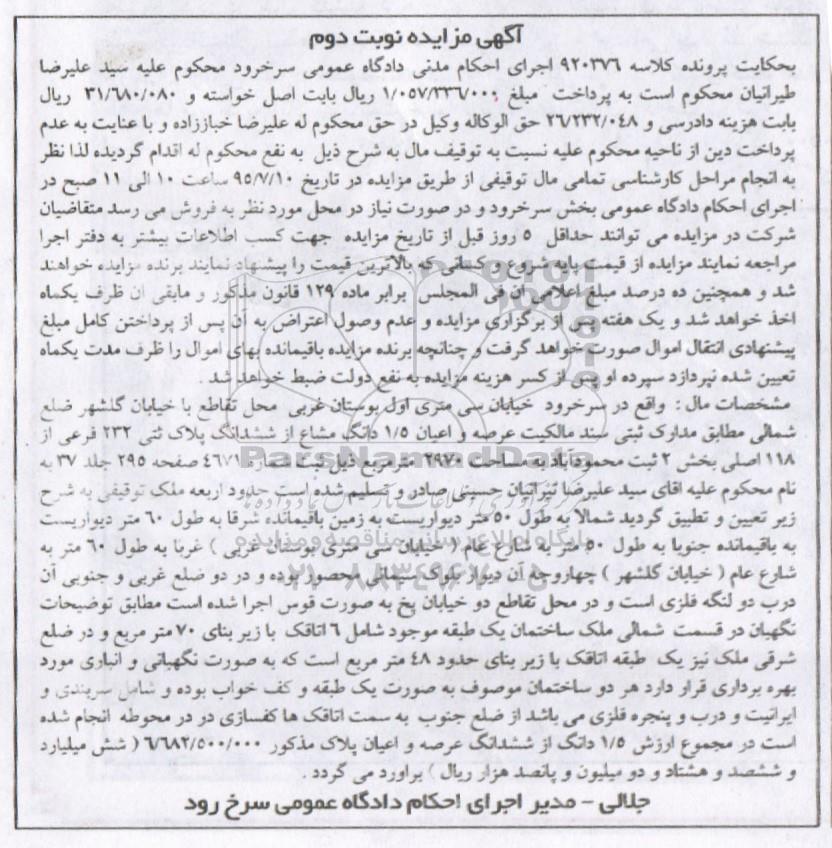 آگهی مزایده نوبت دوم
بحکایت پرونده کلاسه ۹۲۰۳۷۶ اجرای احکام مدنی دادگاه عمومی سرخرود محکوم علیه سید علیرضا
طیرانیان محکوم است به پرداخت مبلغ ۱/۰۵۷/۳۳۶/۰۰۰ ریال بابت اصل خواسته و ۳۱/۶۸۰/۰۸۰ ریال
بابت هزینه دادرسی و ۲۶/۲۳۲/۰۴۸ حق الوکاله وکیل در حق محکوم له علیرضا خبازاده و با عنایت به عدم
پرداخت دین از ناحیه محکوم علیه نسبت به توقیف مال به شرح ذیل به نفع محکوم له اقدام گردیده لذا نظر
به انجام مراحل کارشناسی تمامی مال توقیفی از طریق مزایده در تاریخ ۹۵/۷/۱۰ ساعت ۱۰ الی ۱۱ صبح در
اجرای احکام دادگاه عمومی بخش سرخرود و در صورت نیاز در محل مورد نظر به فروش می رسد متقاضیان
شرکت در مزایده می توانند حداقل ۵ روز قبل از تاریخ مزایده جهت کسب اطلاعات بیشتر به دفتر اجرا
مراجعه نمایند مزایده از قیمت پایه شروع و کسانی که بالاترین قیمت را پیشنهاد نمایند برنده مزایده خواهند
شد و همچنین ده درصد مبلغ اعلامی ان فی المجلس برابر ماده ۱۲۹ قانون مذکور و مابقی ان ظرف یکماه
اخذ خواهد شد و یک هفته پس از برگزاری مزایده و عدم وصول اعتراض به آن پس از پرداختن کامل مبلغ
پیشنهادی انتقال اموال صورت خواهد گرفت و چنانچه برنده مزایده باقیمانده بهای اموال را ظرف مدت یکماه
تعیین شده نپردازد سپرده او پس از کسر هزینه مزایده به نفع دولت ضبط خواهد شد
مشخصات مال : واقع در سرخرود خیابان سی متری اول بوستان غربی محل تقاطع با خیابان گلشهر ضلع
شمالی مطابق مدارک ثبتی سند مالکیت عرصه و اعیان ۱/۵ دانگ مشاع از ششدانگ پلاک ثتی ۲۳۲ فرعی از
۱۱۸ اصلی بخش ۲ ثبت محمودآباد به مساحت ۲۹۷۰ مترمربع ذیل ثبت شماره ۴۶۷۱ صفحه ۲۹۵ جلد ۳۷ به
نام محکوم علیه اقای سید علیرضا تیرانیان حسینی صادر و تسلیم شده است حدود اربعه ملک توقیفی به شرح
زیر تعیین و تطبیق گردید شمالا به طول ۵۰ متر دیواریست به زمین باقیمانده شرقا به طول ۶۰ متر دیواریست
به باقیمانده جنوبا به طول ۵۰ متر به شارع عام ( خیابان سی متری بوستان غربی ) غربا به طول ۶۰ متر به
شارع عام ( خیابان گلشهر ) چهاروجه آن دیوار بلوک سیمانی محصور بوده و در دو ضلع غربی و جنوبی آن
درب دو لنگه فلزی است و در محل تقاطع دو خیابان پخ به صورت قوس اجرا شده است مطابق توضیحات
نگهبان در قسمت شمالی ملک ساختمان یک طبقه موجود شامل ۶ اتاقک با زیر بنای ۷۰ متر مربع و در ضلع
شرقی ملک نیز یک طبقه اتاقک با زیر بنای حدود ۴۸ متر مربع است که به صورت نگهبانی و انباری مورد
بهره برداری قرار دارد هر دو ساختمان موصوف به صورت یک طبقه و کف خواب بوده و شامل سربندی و
ایرانیت و درب و پنجره فلزی می باشد از ضلع جنوب به سمت اتاقک ها کفسازی در در محوطه انجام شده
است در مجموع ارزش ۱/۵ دانگ از ششدانگ عرصه و اعیان پلاک مذکور ۶/۶۸۲/۵۰۰/۰۰۰ ( شش میلیارد
و ششصد و هشتاد و دو میلیون و پانصد هزار ریال ) براورد می گردد .
جلالی - مدیر اجرای احکام دادگاه عمومی سرخ رود
ParsNamadData
پایگاه اطلاع رسانی مناقصه و مزایده
۰۲۱-۸۸۳۴۹۶۷۰-۵